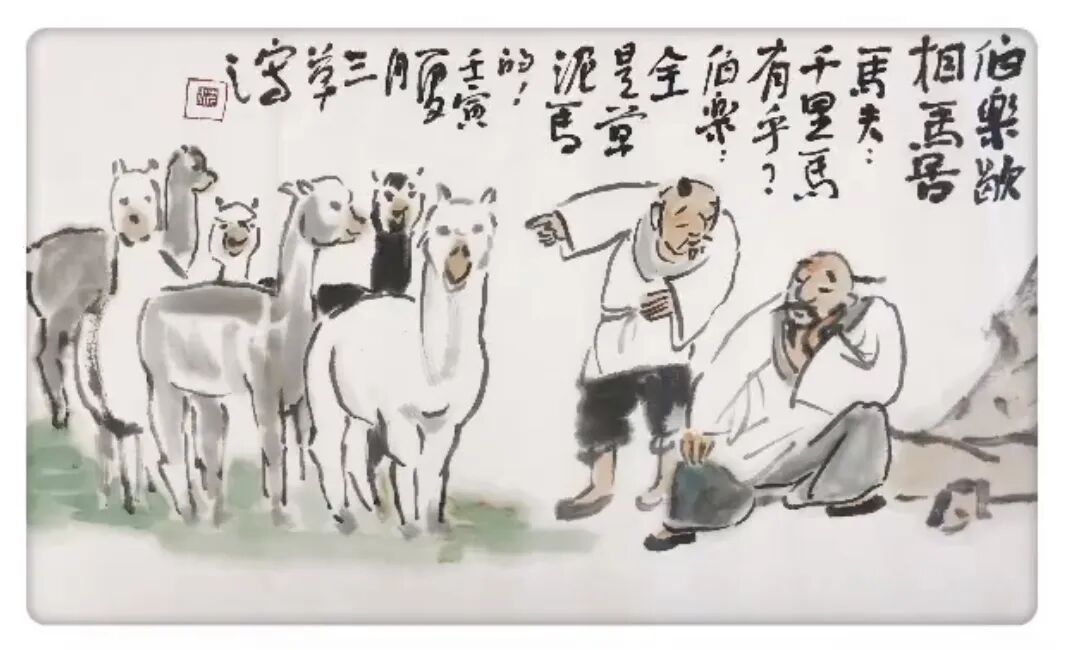 伯樂
相馬啚
馬夫：
千里馬
有乎？
伯樂：
全
是草
泥馬
的！
壬寅
夏
月
三
草
寫
之